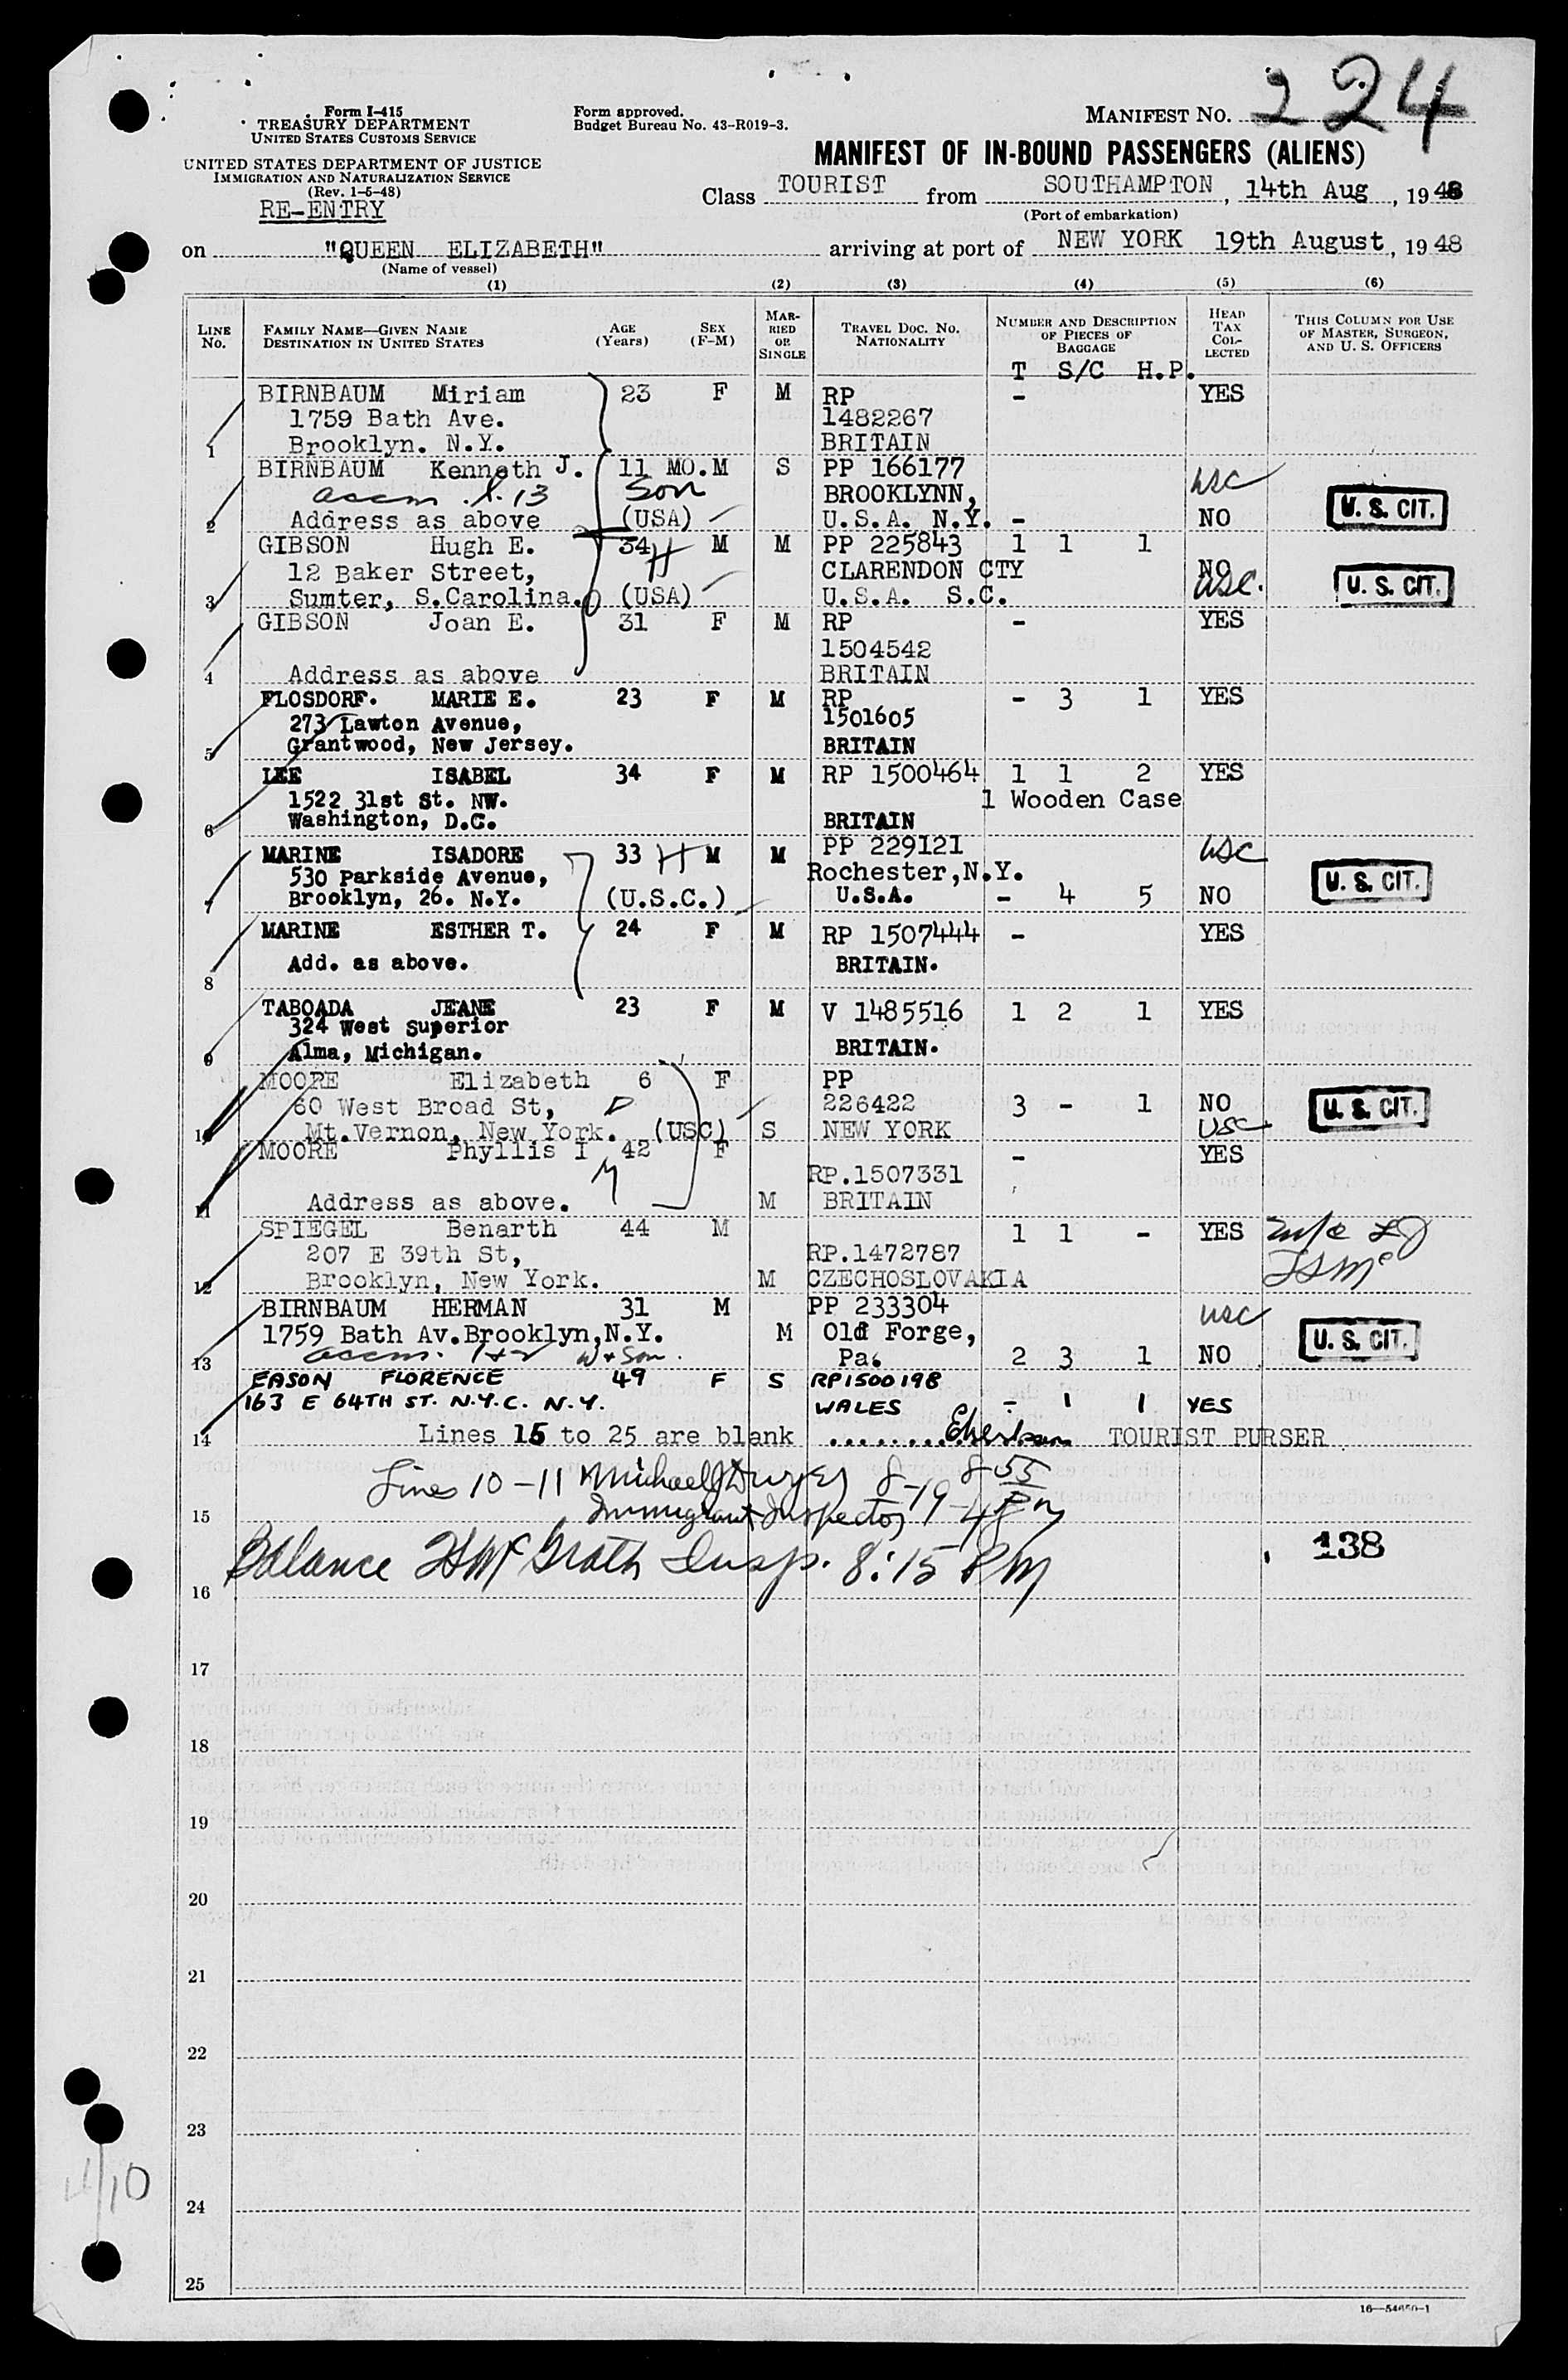 Form I-415
TREASURY DEPARTMENT
UNITED STATES CUSTOMS SERVICE
UNITED STATES DEPARTMENT OF JUSTICE
IMMIGRATION AND NATURALIZATION SERVICE
(Rev. 1-5-48)
RE-ENTRY
Form approved.
Budget Bureau No. 43-R019-3.
MANIFEST NO. 224
MANIFEST OF IN-BOUND PASSENGERS (ALIENS)
Class TOURIST from SOUTHAMPTON, 14th Aug, 1948
(Port of embarkation)
on "QUEEN ELIZABETH" arriving at port of NEW YORK 19th August, 1948
(Name of vessel)
(1) (2) (3) (4) (5) (6)
LINE No.
FAMILY NAME—GIVEN NAME
DESTINATION IN UNITED STATES
AGE (Years)
SEX (F-M)
MARRIED OR SINGLE
TRAVEL DOC. NO.
NATIONALITY
NUMBER AND DESCRIPTION OF PIECES OF BAGGAGE
T S/C H.P.
HEAD TAX COLLECTED
THIS COLUMN FOR USE OF MASTER, SURGEON, AND U. S. OFFICERS
BIRNBAUM Miriam 23 F M RP - YES
1759 Bath Ave. 1482267
1 Brooklyn. N.Y. BRITAIN
BIRNBAUM Kenneth J. 11 MO. M S PP 166177 USC
accm. l. 13 Son BROOKLYNN, U. S. CIT.
2 Address as above (USA) U.S.A. N.Y. - NO
GIBSON Hugh E. 34 H M M PP 225843 1 1 1
12 Baker Street, CLARENDON CTY NO U. S. CIT.
3 Sumter, S.Carolina. (USA) U.S.A. S.C. USC.
GIBSON Joan E. 31 F M RP - YES
1504542
4 Address as above BRITAIN
FLOSDORF. MARIE E. 23 F M RP - 3 1 YES
273 Lawton Avenue, 1501605
5 Grantwood, New Jersey. BRITAIN
LEE ISABEL 34 F M RP 1500464 1 1 2 YES
1522 31st St. NW. 1 Wooden Case
6 Washington, D.C. BRITAIN
MARINE ISADORE 33 H M M PP 229121 USC
530 Parkside Avenue, Rochester,N.Y. U. S. CIT.
7 Brooklyn, 26. N.Y. (U.S.C.) U.S.A. - 4 5 NO
MARINE ESTHER T. 24 F M RP 1507444 - YES
8 Add. as above. BRITAIN.
TABOADA JEANE 23 F M V 1485516 1 2 1 YES
324 West Superior
9 Alma, Michigan. BRITAIN.
MOORE Elizabeth 6 F PP
60 West Broad St, D 226422 3 - 1 NO U. S. CIT.
10 Mt.Vernon, New York. (USC) S NEW YORK USC
MOORE Phyllis I 42 F - YES
M RP.1507331
11 Address as above. M BRITAIN
SPIEGEL Benarth 44 M 1 1 - YES
207 E 39th St, RP.1472787
12 Brooklyn, New York. M CZECHOSLOVAKIA
BIRNBAUM HERMAN 31 M PP 233304 USC
1759 Bath Av.Brooklyn,N.Y. M Old Forge, U. S. CIT.
13 accm. 1+2 W + Son. Pa. 2 3 1 NO
EASON FLORENCE 49 F S RP1500198
163 E 64TH ST. N.Y.C. N.Y. WALES - 1 1 YES
14 Lines 15 to 25 are blank ........ TOURIST PURSER
Lines 10-11 Michael J Dwyer 8-19-48 8-55 Pm
15 Immigrant Inspector
Balance McGrath Insp. 8:15 PM
138
16
17
18
19
20
21
22
23
24
25
16—54650-1